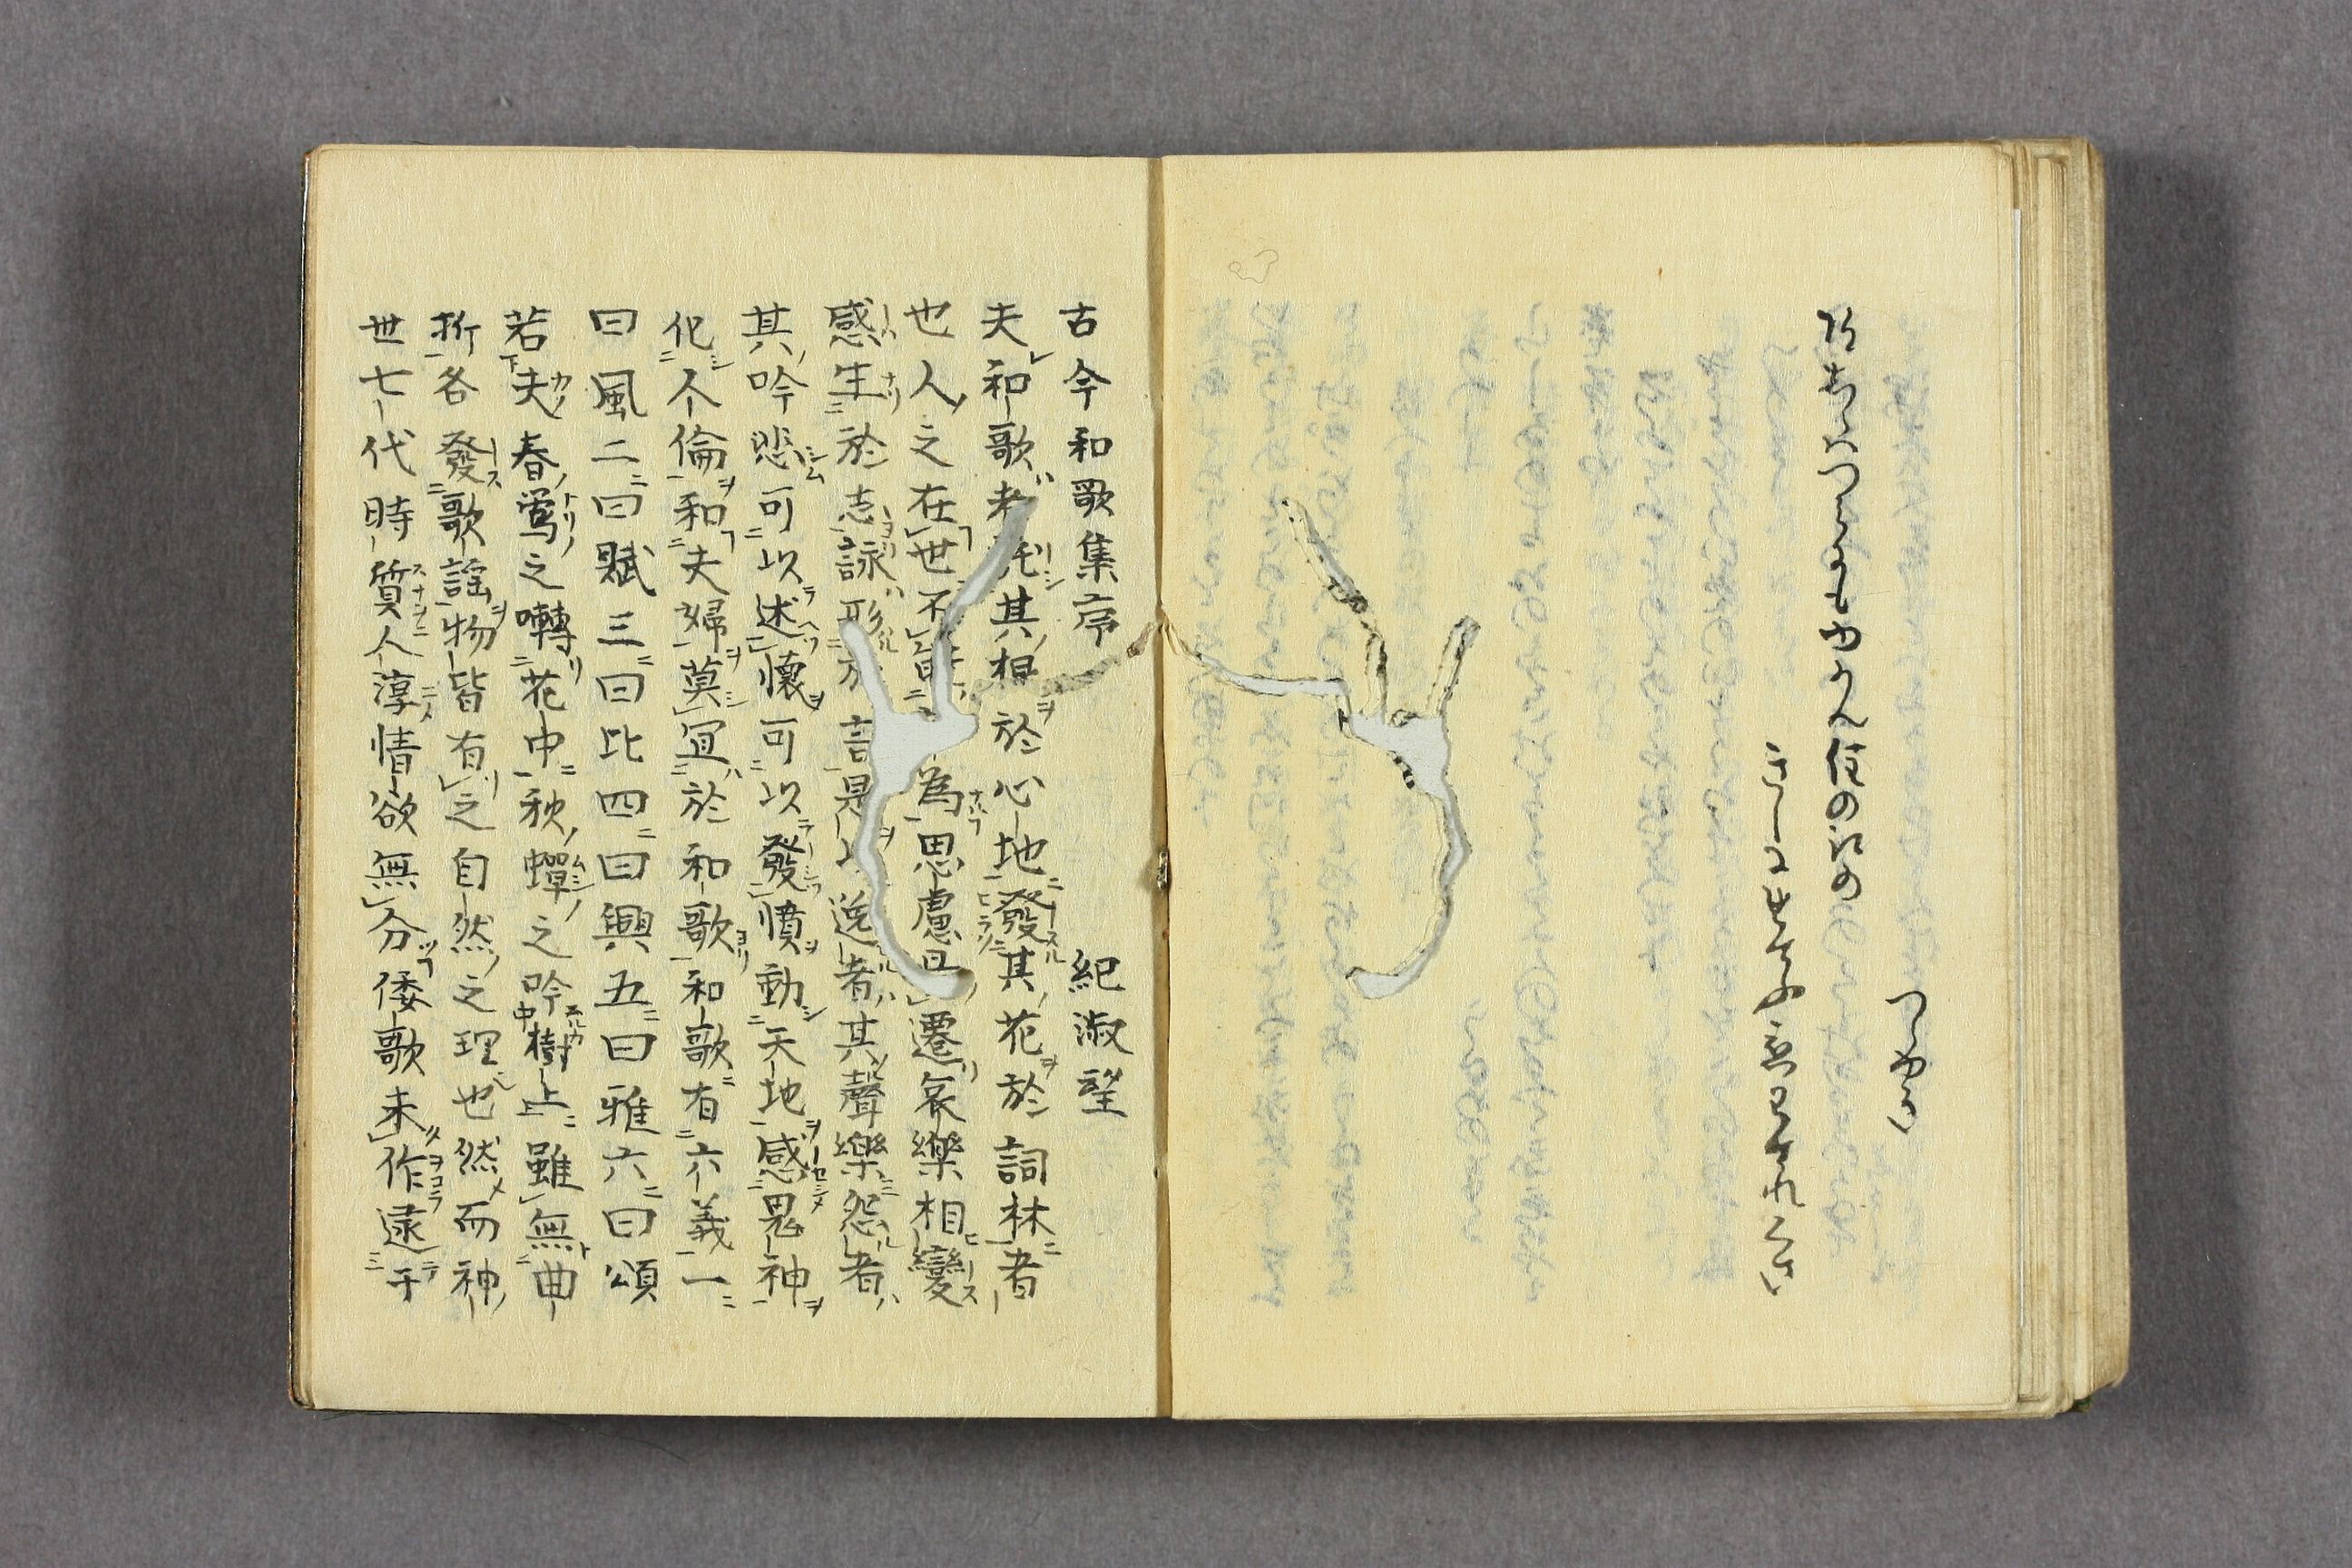 つらゆき
道しらはつみにもゆかん住の江の
きしにおふてふ恋わすれくさ
古今和歌集序　紀淑望
夫和歌者託其根於心地發其花於詞林者
也人之在世不能為思慮易遷哀樂相變
感生於志詠形於言是以逸者其聲樂怨者
其吟悲可以述懷可以發憤動天地感鬼神
化人倫和夫婦莫宜於和歌和歌有六義一
曰風二曰賦三曰比四曰興五曰雅六曰頌
若夫春鶯之囀花中秋蟬之吟樹上雖無曲
折各發歌謡物皆有之自然之理也然而神
世七代時質人淳情欲無分倭歌未作逮于